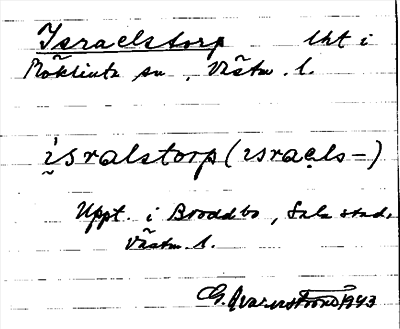 Israelstorp lht i
Möklinta sn, Västm. l.
í̯sralstorp (ısrae̩ls–)
Uppt. i Broddbo, Sala stad,
Västm. l.
G. Qvarnström 1943